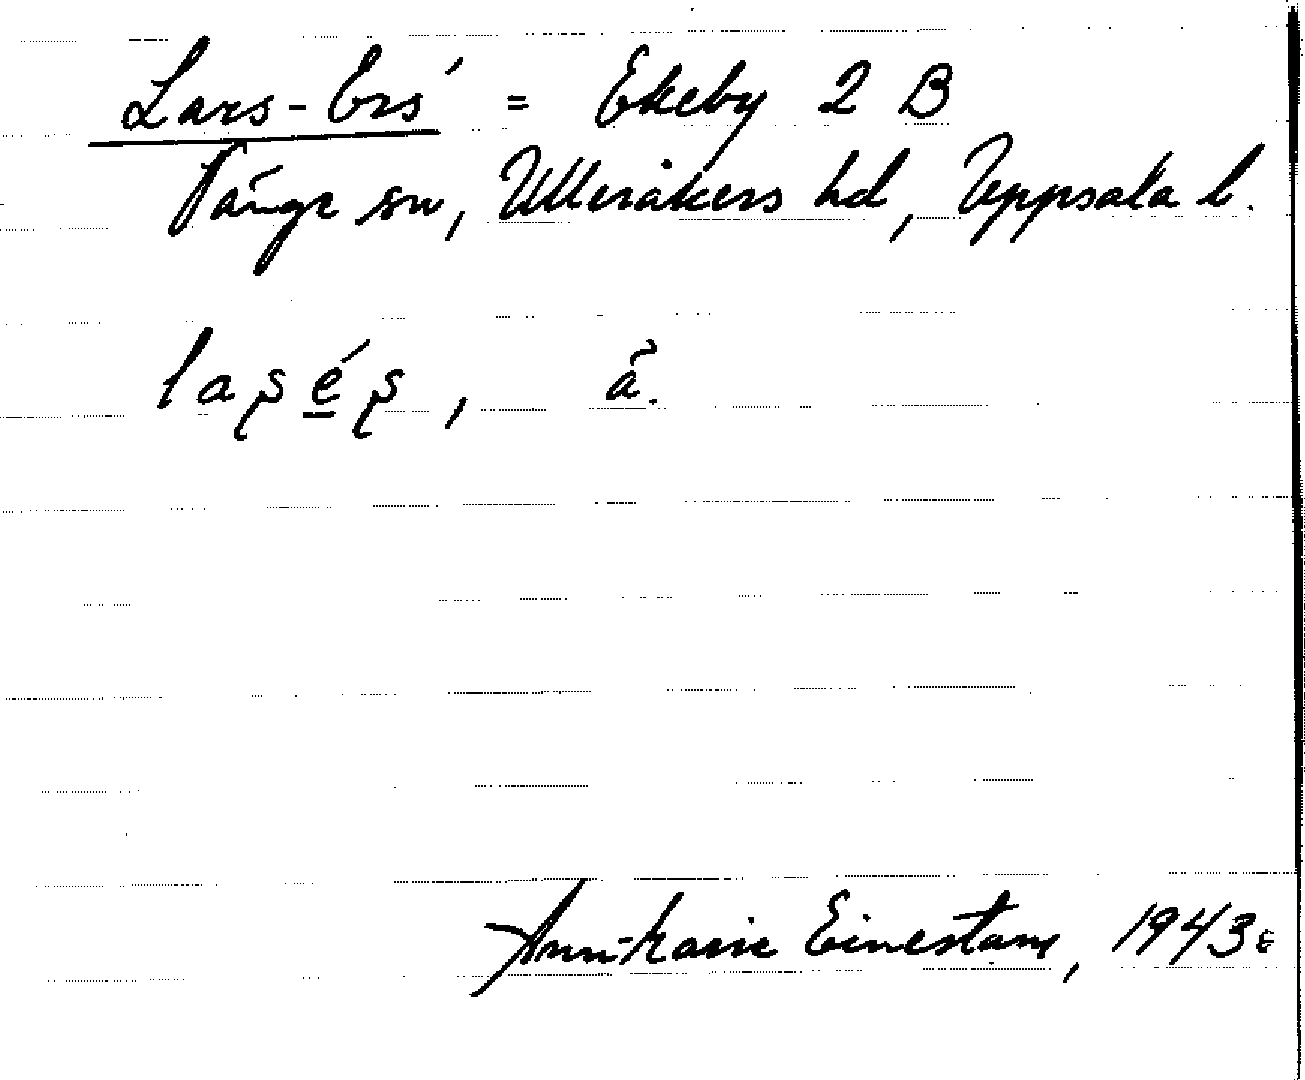 Lars-Ers´ = Ekeby 2 B
Vänge sn, Ulleråkers hd, Uppsala l.
laʂéʂ, ã.
Ann-Karin Einestam, 1943